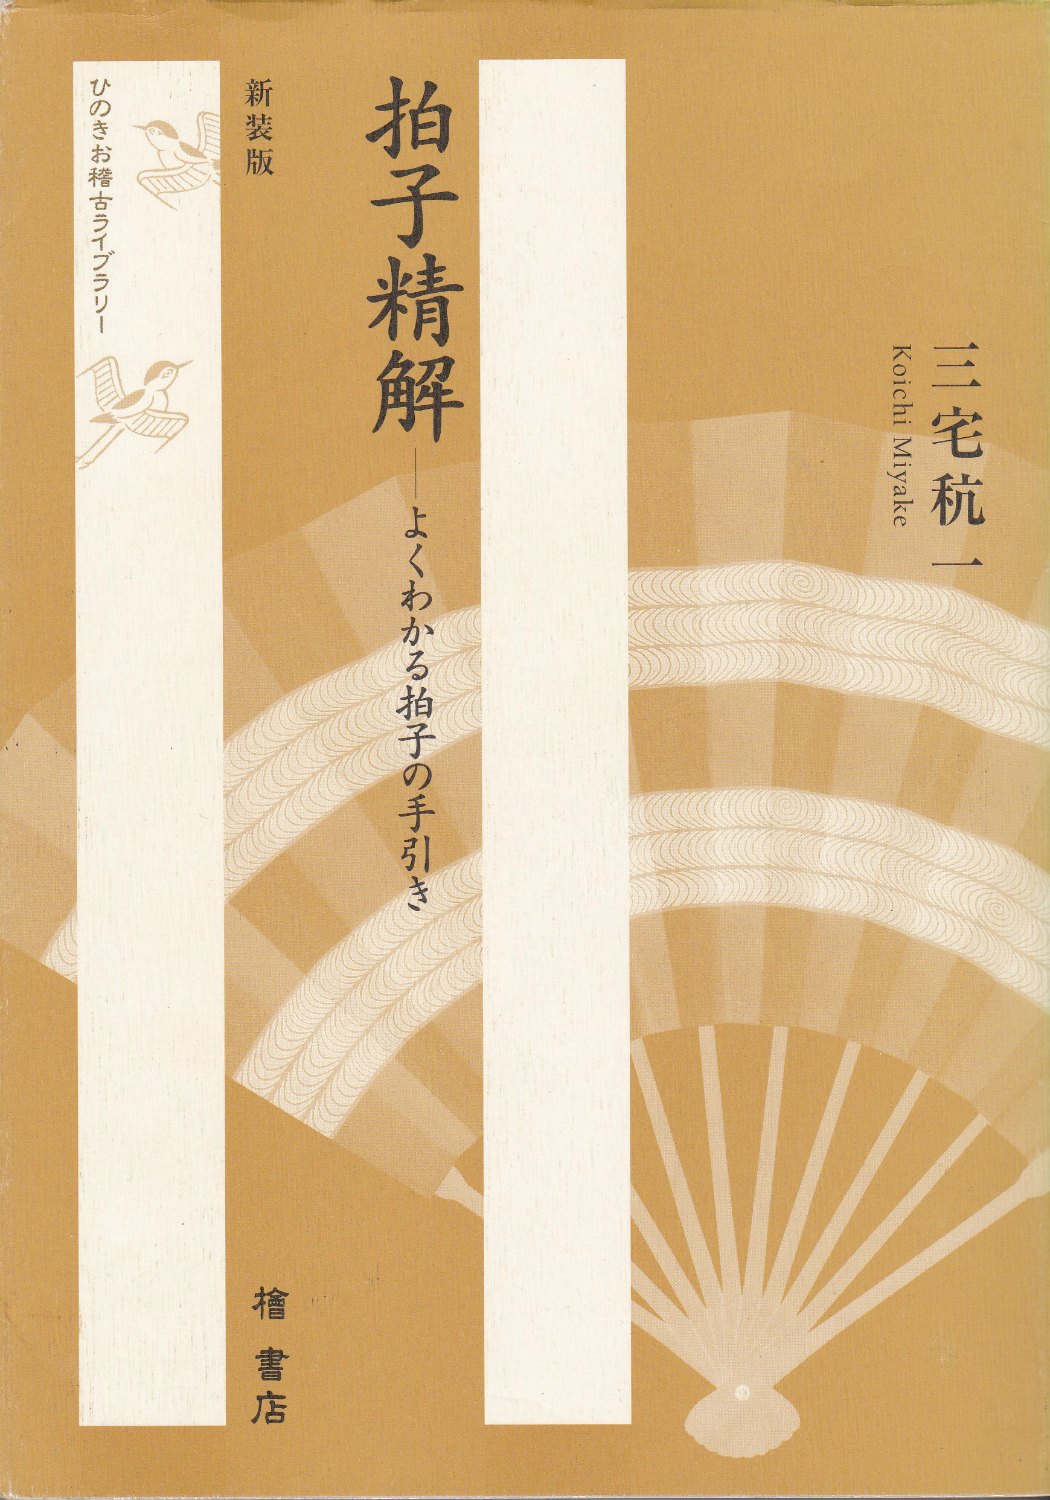 三宅秔一
Koichi Miyake
拍子精解
――よくわかる拍子の手引き
新装版
檜書店
ひのきお稽古ライブラリー